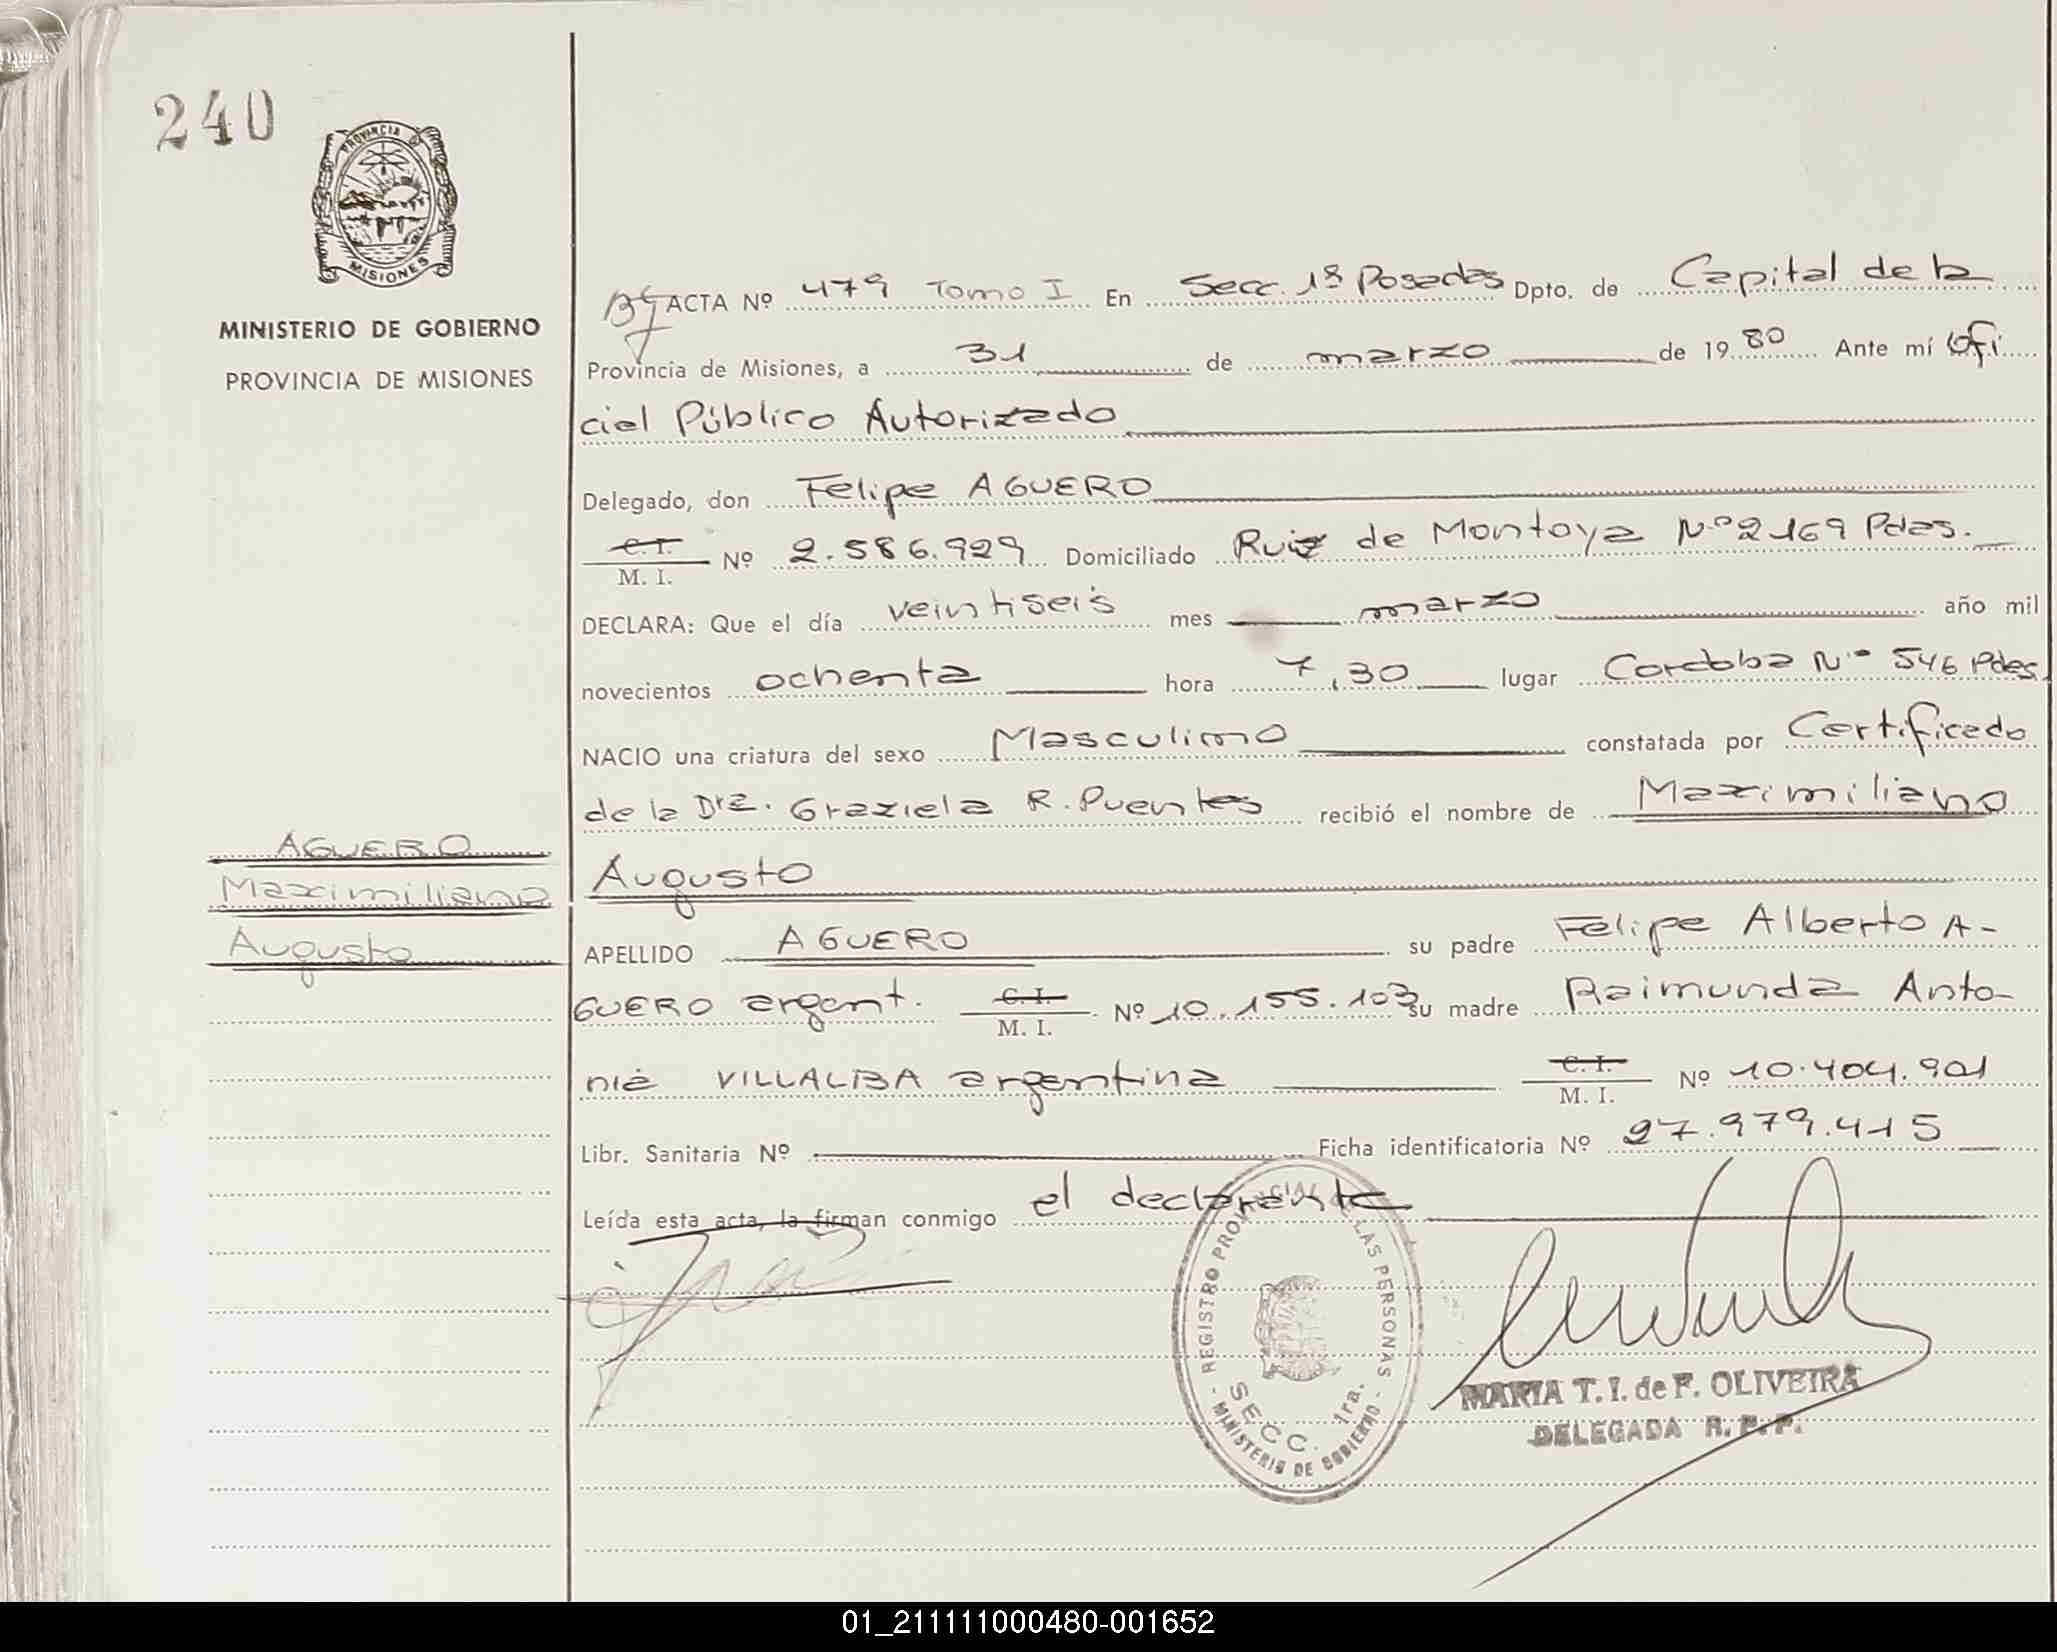 240
PROVINCIA D
MISIONES
MINISTERIO DE GOBIERNO
PROVINCIA DE MISIONES
ACTA Nº 479 Tomo I En Secc. 1ª Posadas Dpto. de Capital de la
Provincia de Misiones, a 31 de marzo de 1980 Ante mí Ofi
cial Público Autorizado
Delegado, don Felipe AGUERO
C.I. M. I. Nº 2.586.929 Domiciliado Ruiz de Montoya Nº 2169 Pdas.
DECLARA: Que el día veintiseis mes marzo año mil
novecientos ochenta hora 7,30 lugar Cordoba Nº 546 Pdas.
NACIO una criatura del sexo Masculino constatada por Certificado
de la Dra. Graziela R. Puentes recibió el nombre de Maximiliano
Augusto
AGUERO
Maximiliano
Augusto
APELLIDO AGUERO su padre Felipe Alberto A-
GUERO argent. C.I. M. I. Nº 10.155.103 su madre Raimunda Anto-
nia VILLALBA argentina C.I. M. I. Nº 10.404.901
Libr. Sanitaria Nº Ficha identificatoria Nº 27.979.415
Leída esta acta, la firman conmigo el declarante
REGISTRO PROVINCIAL LAS PERSONAS
SECC. 1ra.
MINISTERIO DE GOBIERNO
MARIA T. I. de F. OLIVEIRA
DELEGADA R. P. P.
01_211111000480-001652